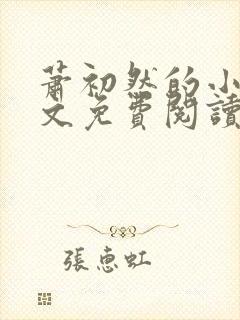 蕭初然的小
文免費閱讀
張惠虹